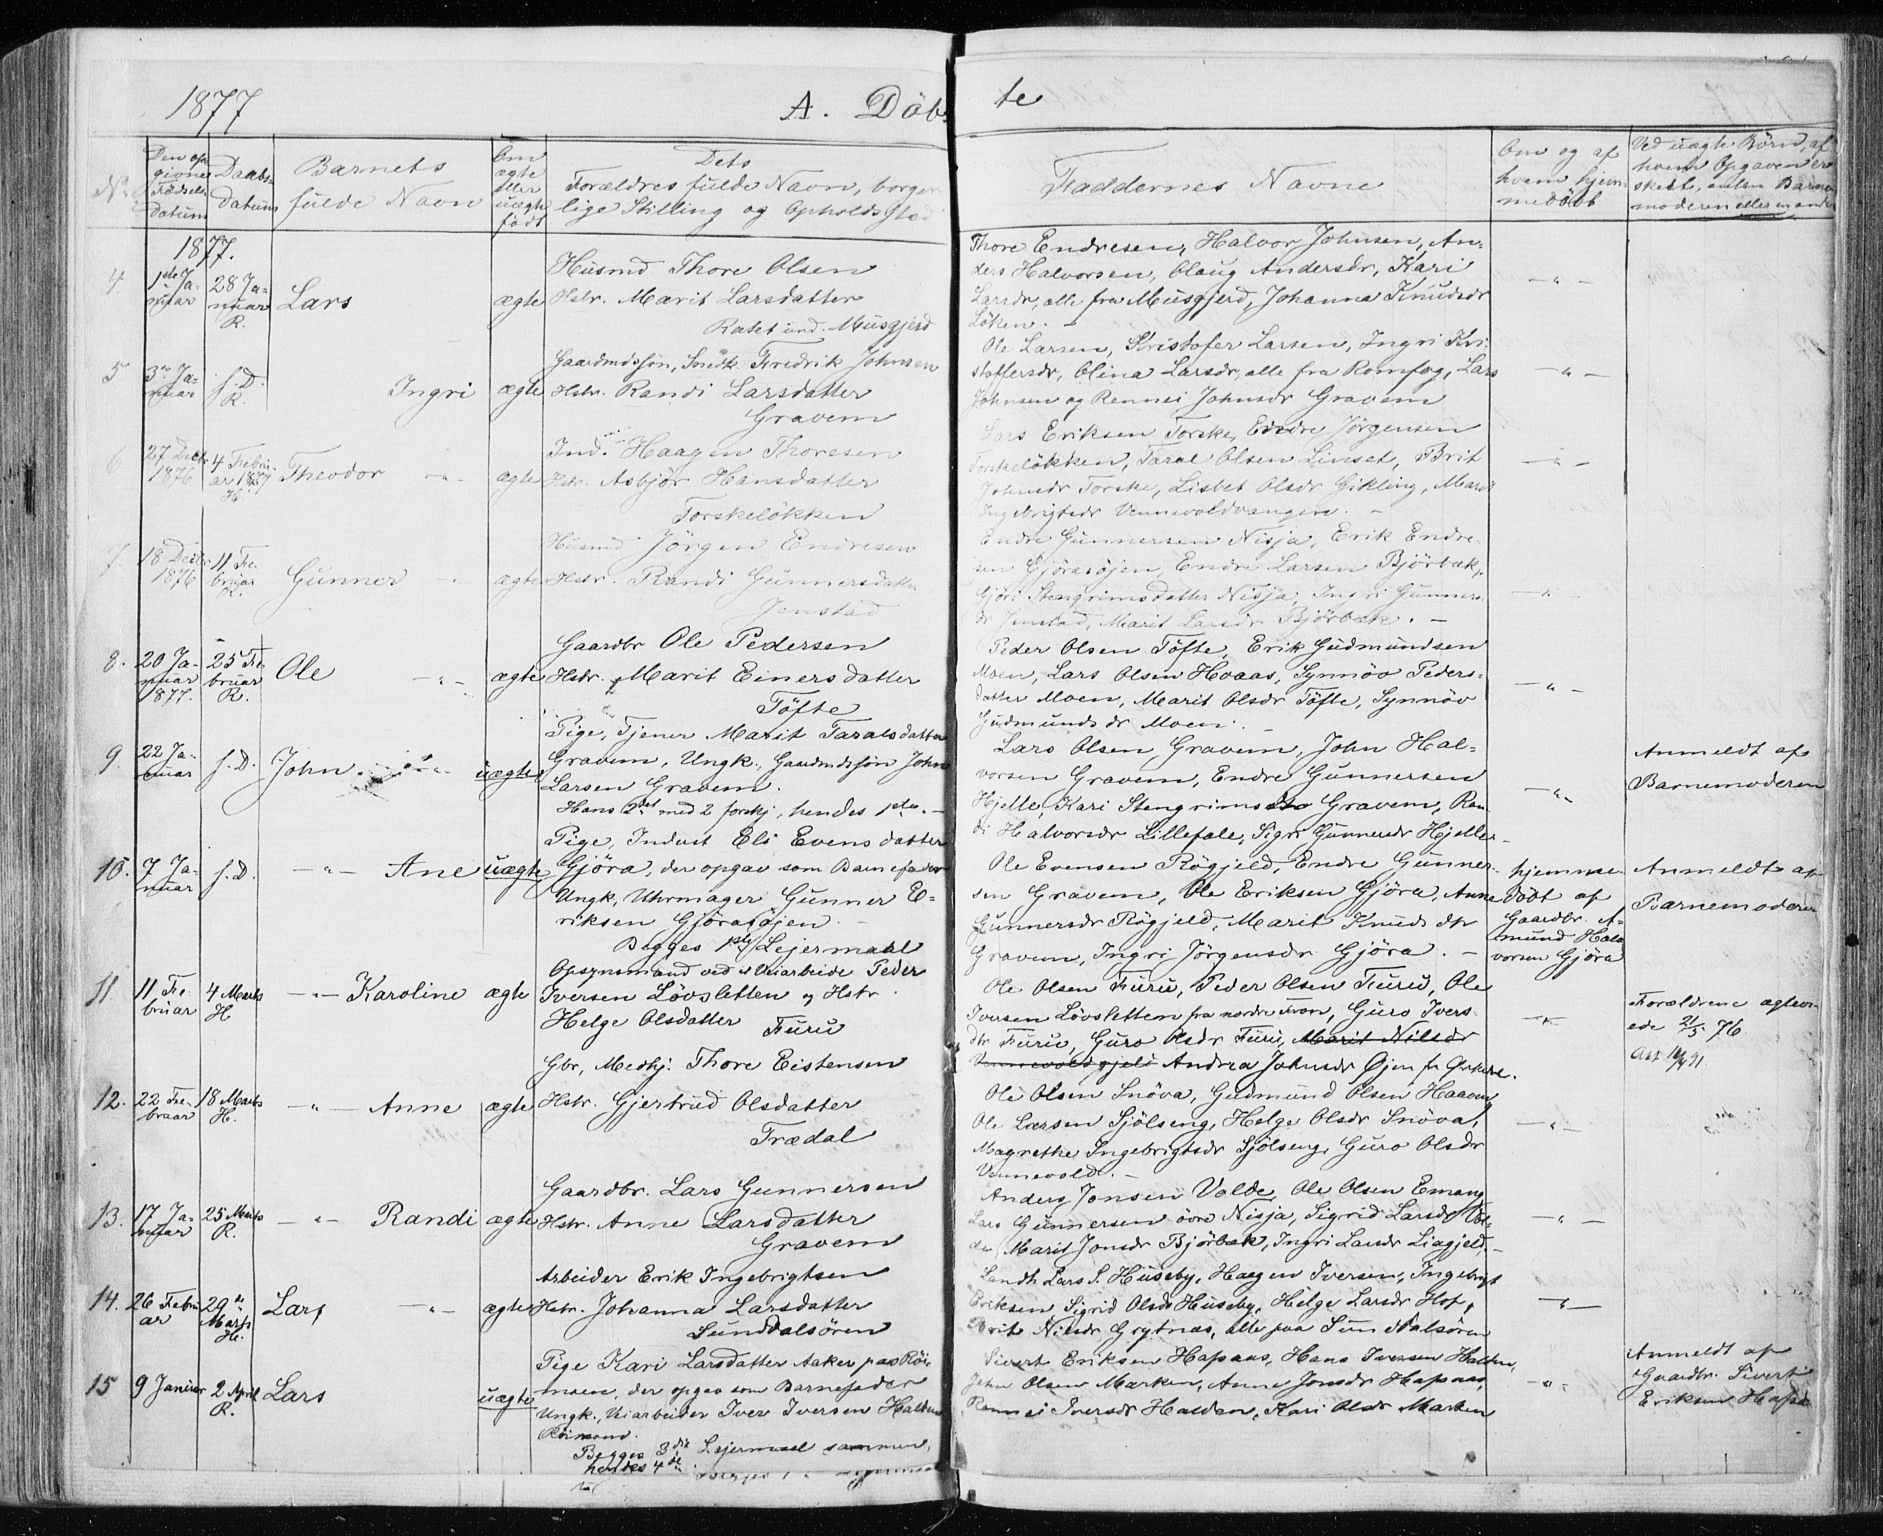 1877
A. Döbte
No.
Den opgivne Fødsels Datum
Daabs-Datum
Barnets fulde Navn
Om ægte eller uægte født
Dets Forældres fulde Navn, borgerlige Stilling og Opholdssted
Faddernes Navne
Om og af hvem hjemmedöbt
Ved uægte Börn, af hvem Opgaven er skeet, enten Barnemoderen eller en anden
1877.
4
1ste Januar
28 Januar R.
Lars
ægte
Husmd Thore Olsen
Hstr. Marit Larsdatter
und. Musgjerd
Thore Endresen, Halvor Johnsen, An-
ders Halvorsen, Olaug Andersdr, Kari
Larsdr, alle fra Musgjerd, Johanna Knudsdr
Löken. -
- " -
5
3die Januar
s. D. R.
Ingri
ægte
Gaardmdssön, Fredrik Johnsen
Hstr. Randi Larsdatter
Gravem
Ole Larsen, Kristofer Larsen, Ingri Kri
stoffersdr, Olina Larsdr, alle fra Romfog, Lars
Johnsen og Rennei Johnsdr Gravem
- " -
6
27 Decbr 1876
4 Februar 1877 H.
Theodor - " -
ægte
Ind. Haagen Thoresen
Hstr. Asbjör Hansdatter
Torskelökken
Lars Eriksen Torske, Endre Jörgensen
Torskelökken, Taral Olsen Linset, Brit
Johnsdr Torske, Lisbet Olsdr Gikling, Marit
Ingebrigtsdr Vennevoldvangen. -
- " -
7.
18 Decbr 1876
11 Februar R.
Gunner - " -
ægte
Husmd Jörgen Endresen
Hstr. Randi Gunnersdatter
Jenstad
Endre Gunnersen Nisja, Erik Endre-
sen Gjörasöjen, Endre Larsen Björbæk,
Gjöri Stengrimsdatter Nisja, Ingri Gunners-
dr Jenstad, Marit Larsdr Björbæk. -
- " -
8.
20 Januar 1877.
25 Februar R.
Ole - " -
ægte
Gaardbr Ole Pedersen
Hstr. Marit Einersdatter
Töfte
Peder Olsen Töfte, Erik Gudmundsen
Moen, Lars Olsen Hoaas, Synnöv Peders-
datter Moen, Marit Olsdr Töfte, Synnöv
Gudmundsdr Moen. -
- " -
9
22 Januar
s. D.
John
uægte
Pige, Tjener Marit Taralsdatter
Gravem, Ungk., Gaardmdssön John
Larsen Gravem.
Hans 2det med 2 forskj, hendes 1ste. -
Lars Olsen Gravem, John Hal-
vorsen Gravem, Endre Gunnersen
Hjelle, Kari Stengrimsdr Gravem, Ran-
di Halvorsdr Lillefale, Sigri Gunnersdr Hjelle
- " -
Anmeldt af
Barnemoderen
10.
7 Januar
s. D.
- " - Ane
uægte
Pige, Inderst Eli Evensdatter
Gjöra, der opgav som Barnefader
Ungk, Uhrmager Gunner E-
riksen Gjörasöjen. -
Begges 1ste Lejermaal
Ole Evensen Rögjeld, Endre Gunner-
sen Gravem, Ole Eriksen Gjöra, Anne
Gunnersdr Rögjeld, Marit Knudsdtr
Gravem, Ingri Jörgensdr Gjöra. -
hjemme-
döbt af
Gaardbr. A-
mund Hal-
vorsen Gjöra
Anmeldt af
Barnemoderen
11
11 Februar
4 Marts H
- " - Karoline
ægte
Opsynsmand ved Veiarbeide Peder
Iversen Lövsletten og Hstr.
Helge Olsdatter Furu
Ole Olsen Furu, Peder Olsen Furu, Ole
Iversen Lövsletten fra nordre Fron, Guro Ivers-
dtr Furu, Guro Olsdr Furu, Marit Nilsdr
Vennevoldgjeli Andrea Johnsdr Öjen
- " -
Forældrene ægtevi-
ede 21/5 76.
12.
22 Februar
18 Marts H.
- " - Anne
ægte
Gbr, Medhj. Thore Eistensen
Hstr. Gjertrud Olsdatter
Trædal
Ole Olsen Snöva, Gudmund Olsen Haaven,
Ole Larsen Sjölseng, Helge Olsdr Snöva,
Magrethe Ingebrigtsdr Sjölseng, Guro Olsdr
Vennevold. -
- " -
13.
17 Januar
25 Marts R.
- " - Randi
ægte
Gaardbr. Lars Gunnersen
Hstr. Anne Larsdatter
Gravem
Anders Jonsen Volde, Ole Olsen Emang
Lars Gunnersen övre Nisja, Sigrid Larsdr Vol-
de, Marit Jonsdr Björbæk, Ingri Larsdr Liagjeld. -
- " -
14.
26 Februar
29de Marts H.
Lars - " -
ægte
Arbeider Erik Ingebrigtsen
Hstr. Johanna Larsdatter
Sunddalsören
Landh. Lars S. Huseby, Haagen Iversen, Ingebrigt
Eriksen, Sigrid Olsdr Huseby, Helge Larsdr Hof,
Brit Nilsdr Grytnæs, alle paa Sunddalsören
- " -
15
9 Januar
2 April R.
Lars
uægte
Pige Kari Larsdatter Aaker paa Röi-
moen, der opgav som Barnefader
Ungk., Veiarbeider Iver Iversen Halden
Röimoen.
Begges 3die Lejermaal sammen,
hendes 4de
Sivert Eriksen Hafsaas, Hans Iversen Halden,
John Olsen Marken, Anne Jonsdr Hafsaas,
Rennei Iversdr Halden, Kari Olsdr Marken
- " -
Anmeldt af
Gaardbr. Sivert
Eriksen Hafsaas